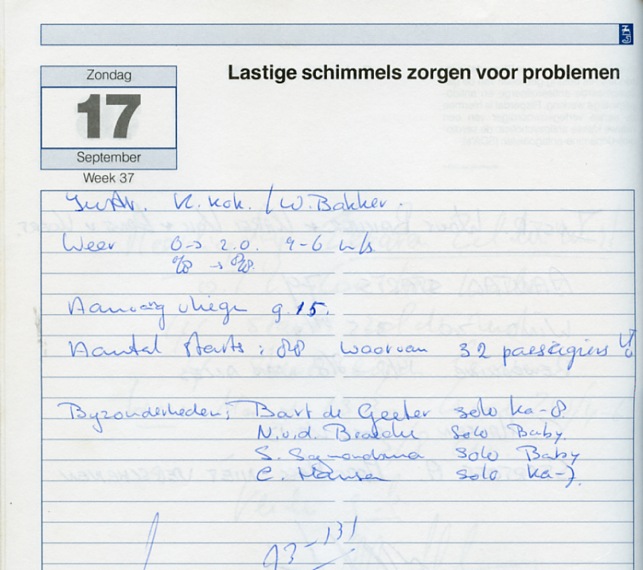 Lastige schimmels zorgen voor problemen
Zondag
17
September
Week 37
Instr. K. Kok / W. Bakker.
Weer 0 -> 2.0. 4-6 m/s
Aanvang vliegen 9.15.
Aantal starts: 88 waarvan 32 passagiers
Byzonderheden; Bart de Geeter solo Ka-8
N.v.d. solo Baby.
S. Symondsma solo Baby
C. Hansen solo Ka-7
93-131